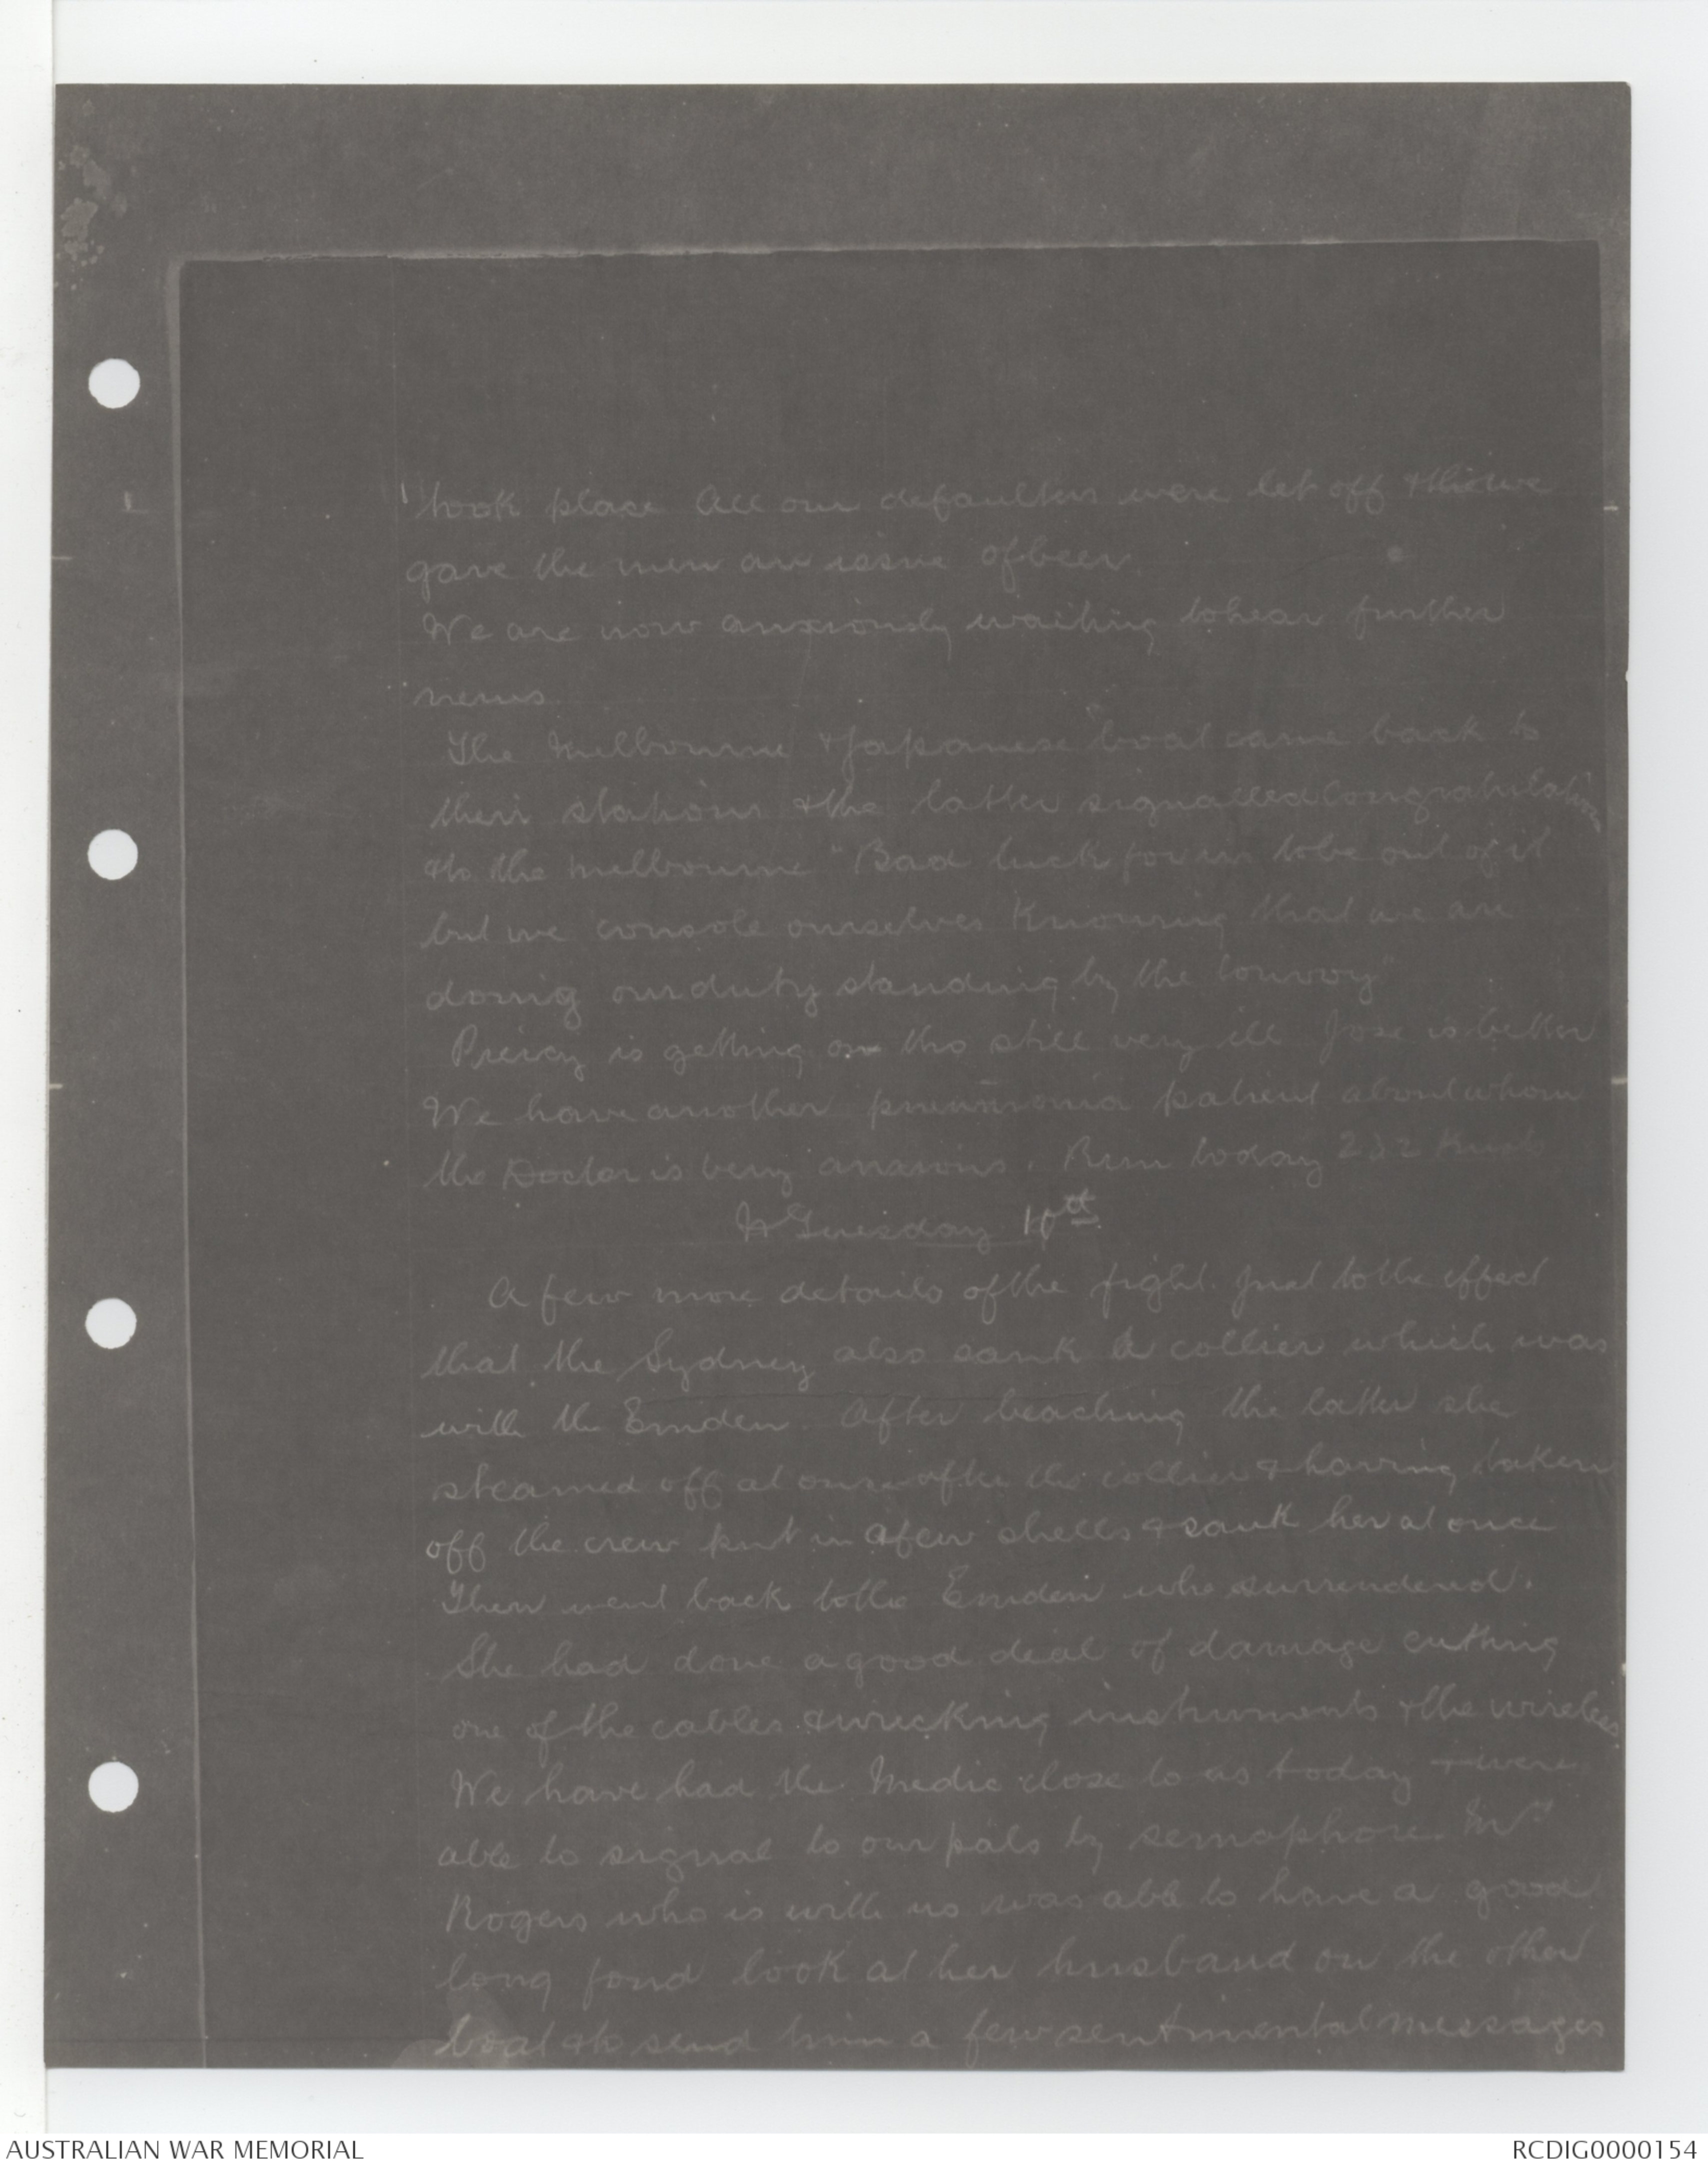 took place All our defaulters were let off & we
gave the men an issue of beer.
We are now anxiously waiting to hear further
news.
The Melbourne & Japanese boat came back to
their stations & the latter signalled Congratulations
& to the Melbourne "Bad luck for us to be out of it
but we console ourselves Knowing that we are
doing our duty standing by the Convoy"
is getting on tho still very ill Jose is better
We have another pneumonia patient about whom
the Doctor is very anxious. Run today 232 Knots
Tuesday 10th
A few more details of the fight. Just to the effect
that the Sydney also sank a collier which was
with the Emden. After beaching the latter she
steamed off at once after the collier & having taken
off the crew put in a few shells & sank her at once
Then went back to the Emden who surrendered.
She had done a good deal of damage cutting
one of the cables & wrecking instruments & the wireless
We have had the Medic close to us today & were
able to signal to our pals by semaphore.
Rogers who is with us was able to have a good
long fond look at her husband on the other
boat & to send him a few sentimental messages
AUSTRALIAN WAR MEMORIAL
RCDIG0000154